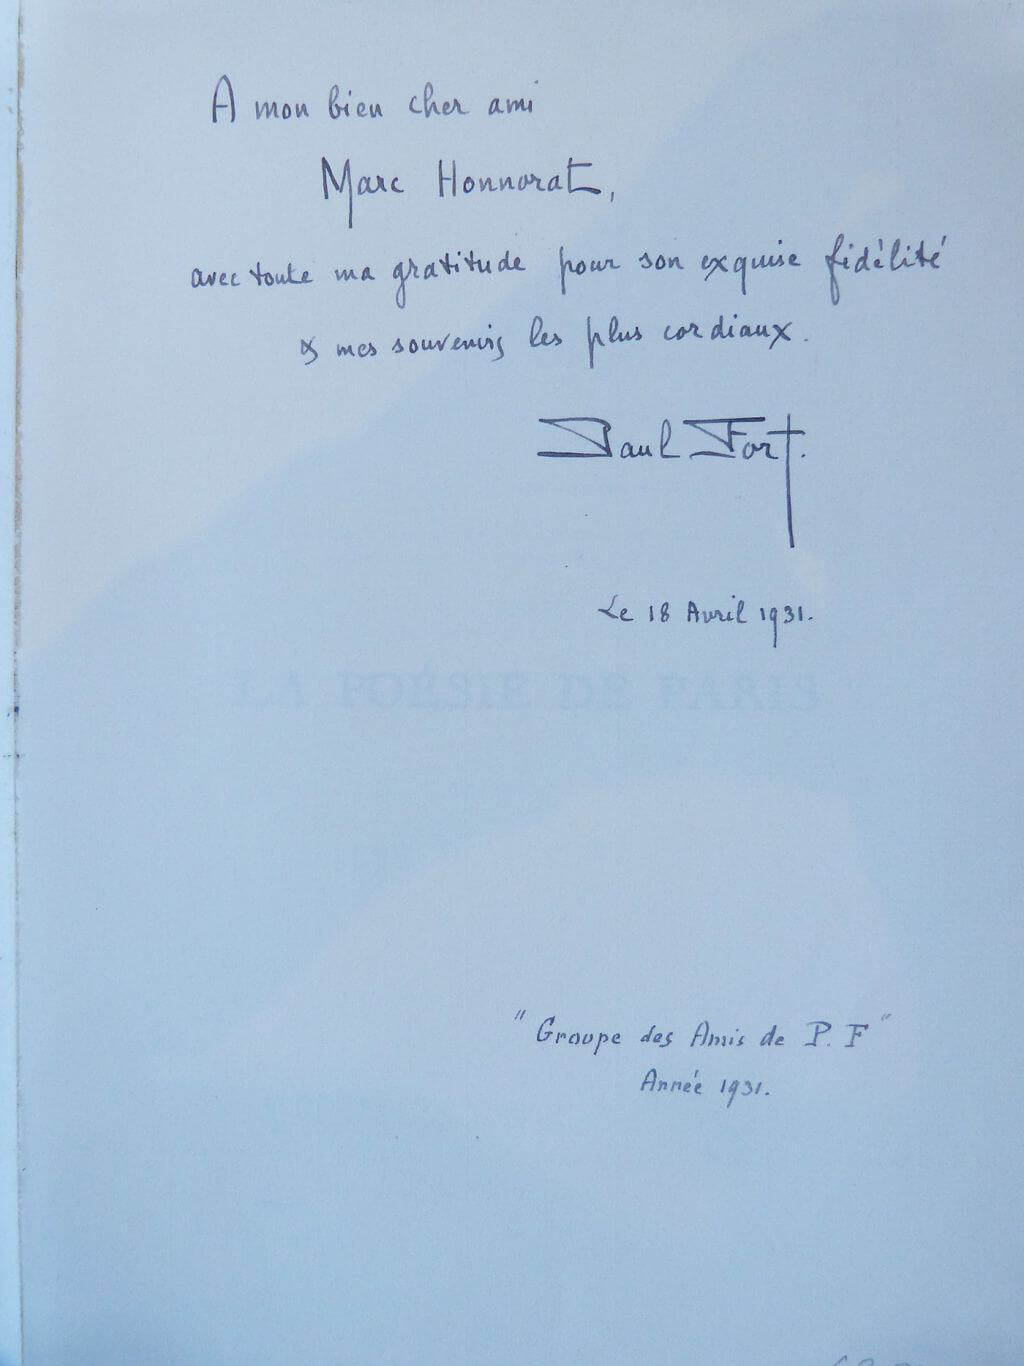 A mon bien cher ami
Marc Honnorat,
avec toute ma gratitude pour son exquise fidélité
& mes souvenirs les plus cordiaux.
Paul Fort.
Le 18 Avril 1931.
LA POÉSIE DE PARIS
"Groupe des Amis de P. F"
Année 1931.